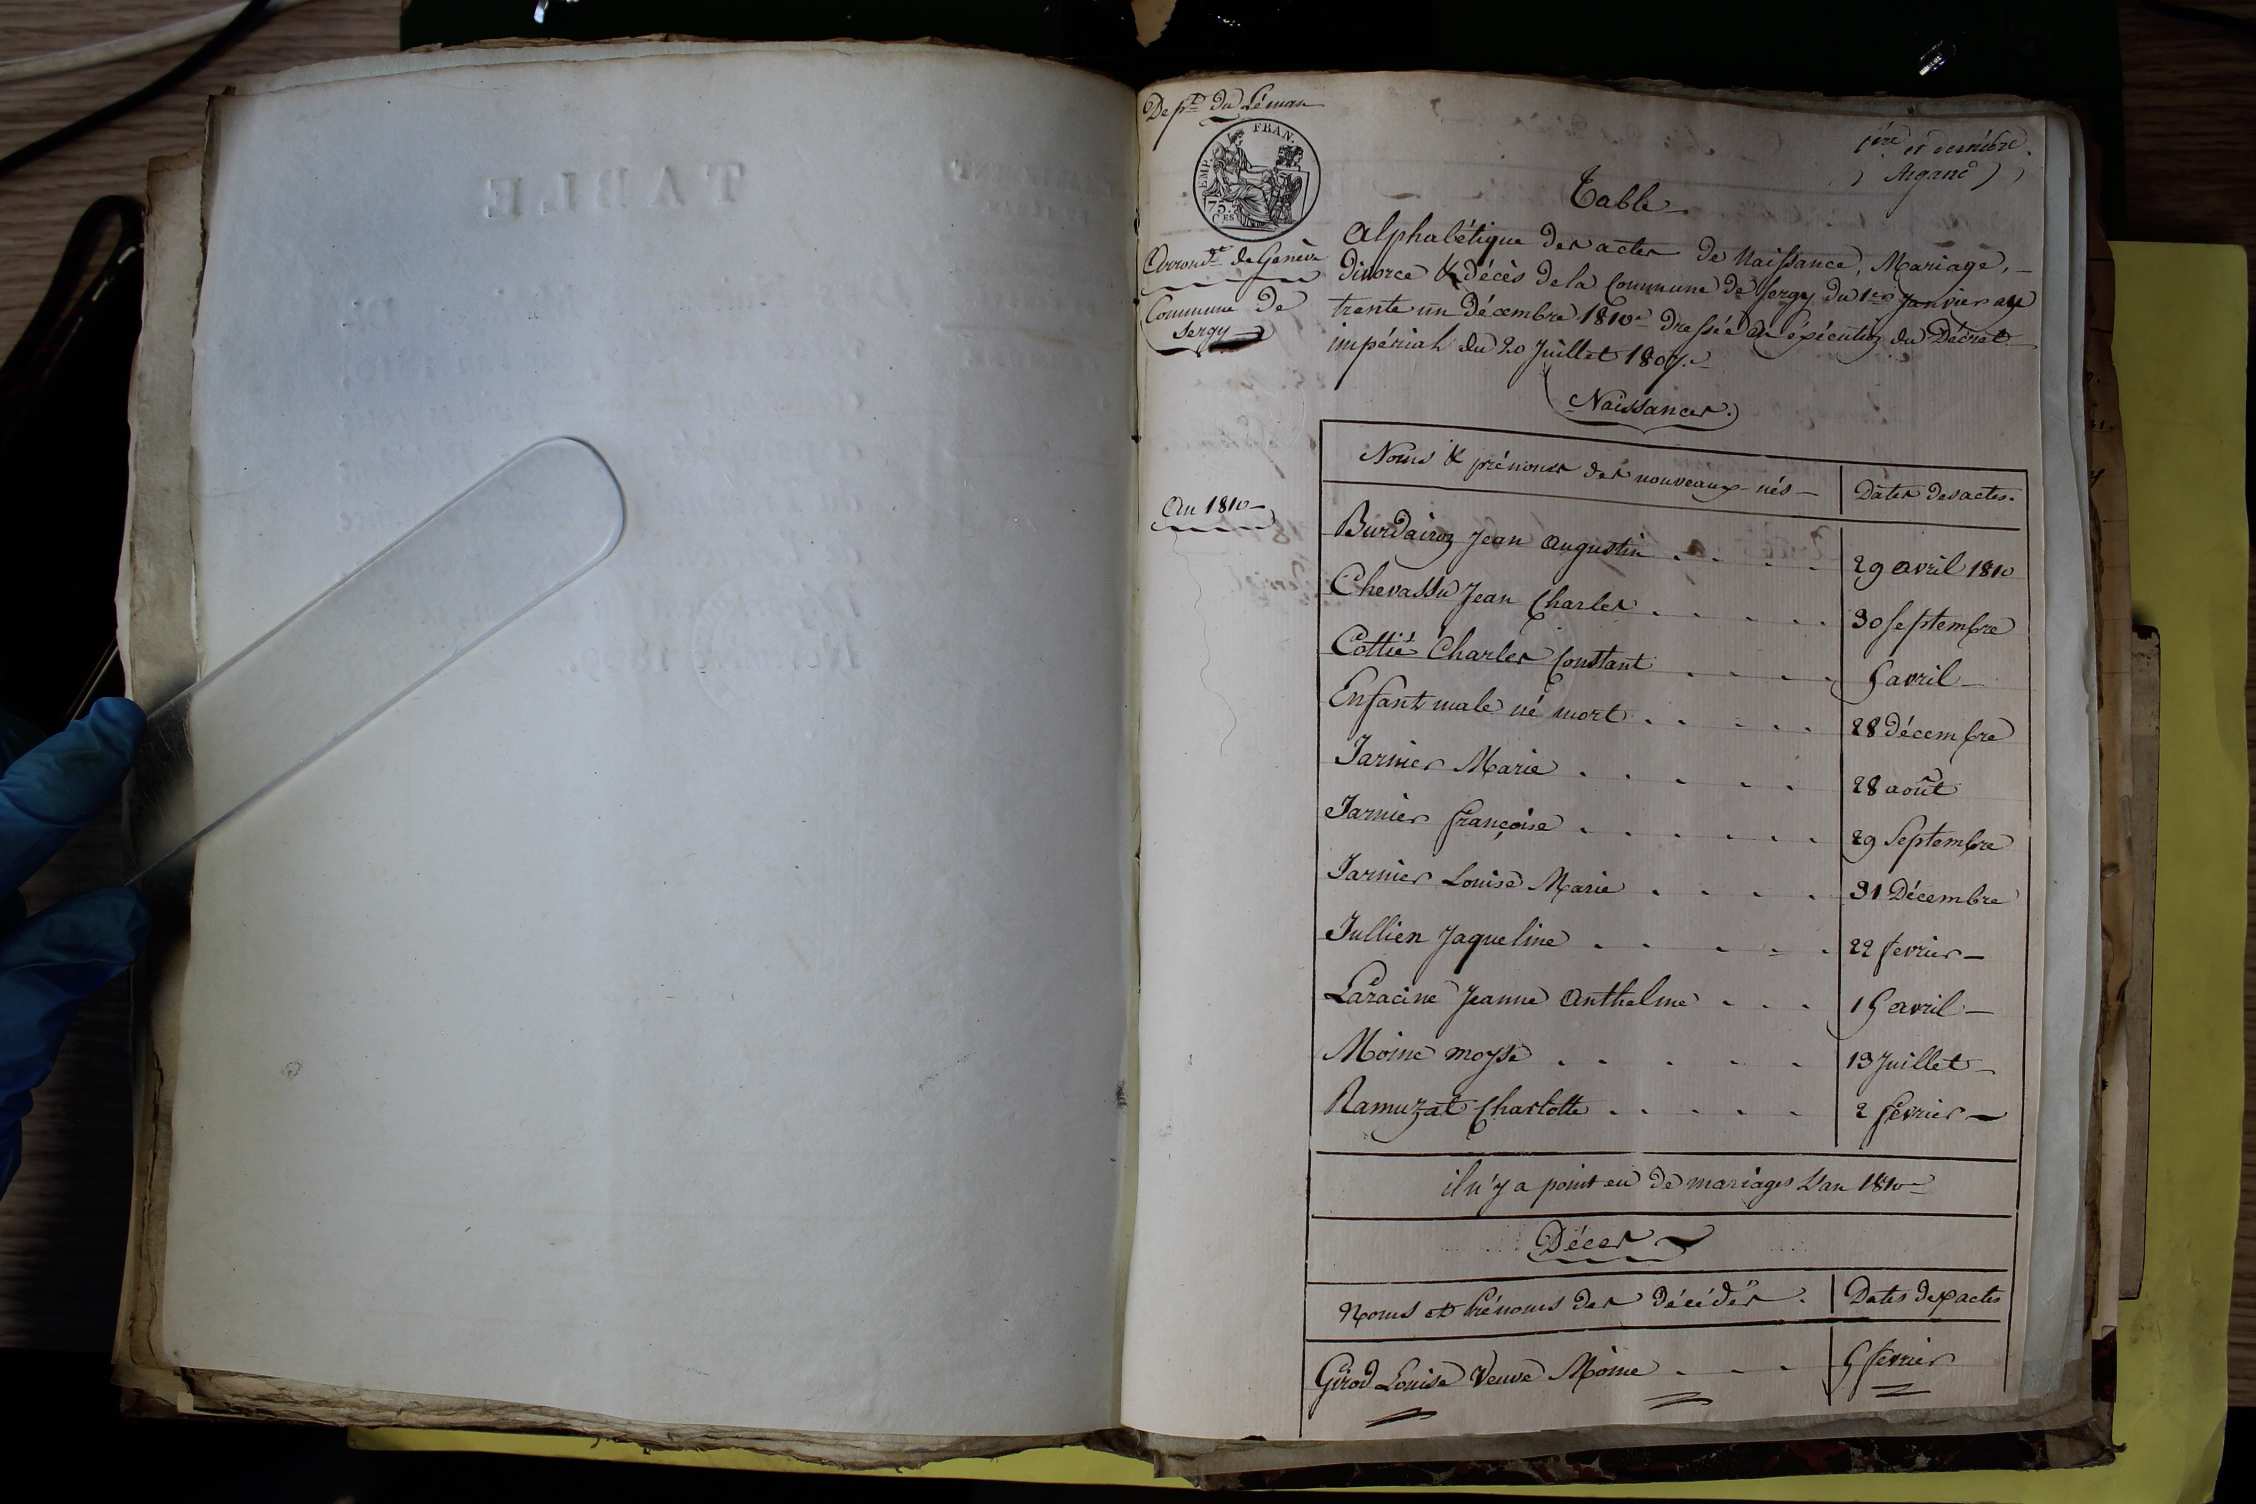 Dép.t du Léman
EMP. FRAN.
75.
C.ES
Arrond.t de Genève
Commune de
Sergy
1ère et dernière
Argand
Table
Alphabétique des actes de Naissance, Mariage,
divorce & décès de la Commune de Sergy du 1er Janvier au
trente un Décembre 1810 dressée en exécution du Décret
impérial du 20 Juillet 1807.
Naissances.
An 1810
Noms & prénoms des nouveaux-nés | Dates des actes.
Burdairoz Jean Augustin . . . . 29 avril 1810
Chevassu Jean Charles . . . . . 30 Septembre
Cottié Charles Constant . . . . 5 avril
Enfant male né mort . . . . . 28 Décembre
Jarnier Marie . . . . . 28 août
Jarnier françoise . . . . . . 29 Septembre
Jarnier Louise Marie . . . . 31 Décembre
Jullien Jaqueline . . . . . 22 fevrier
Laracine Jeanne Anthelme . . . 15 avril
Moine moyse . . . . . 13 Juillet
Ramuzat Charlotte . . . . . 2 février
il n'y a point eu de mariages L'an 1810
Décès
Noms et Prénoms des décédés. | Dates des actes
Girod Louise Veuve Moine . . . 5 fevrier
TABLE